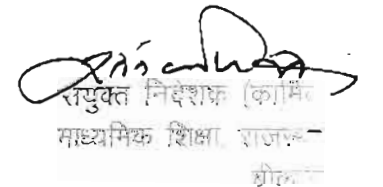 संयुक्त निदेशक (कार्मि
माध्यमिक शिक्षा राजस्
बीका